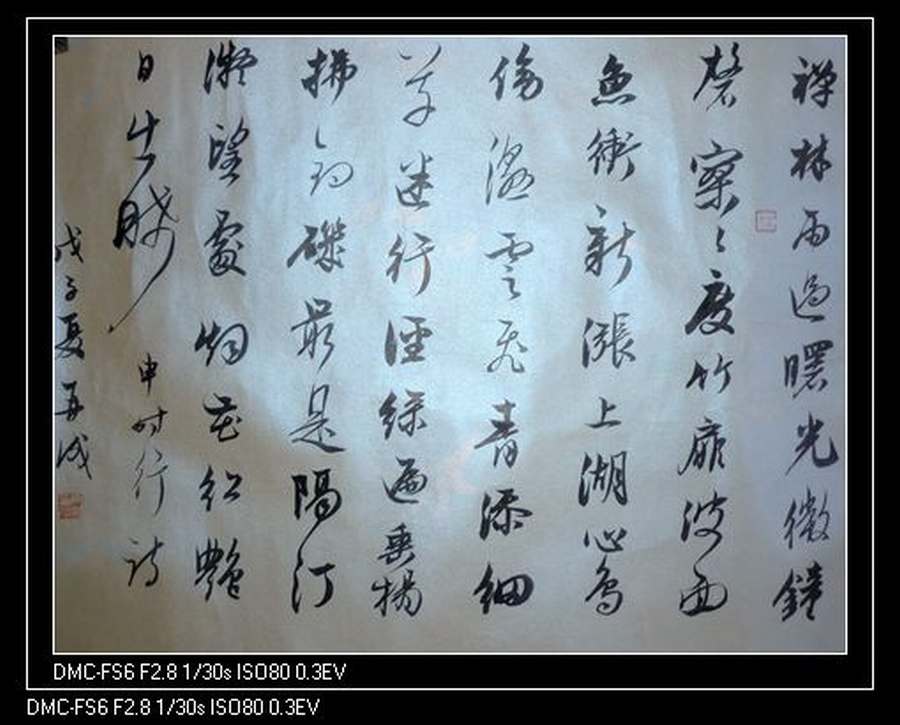 禪林雨過曙光微鐘
磬寥々度竹扉波面
魚銜新漲上湖心鳥
傍濕雲飛青添細
草迷行徑綠遍垂楊
拂釣磯最是隔汀
凝望處烟花紅艷
日 申时行詩
戊子夏再成
DMC-FS6 F2.8 1/30s ISO80 0.3EV
DMC-FS6 F2.8 1/30s ISO80 0.3EV